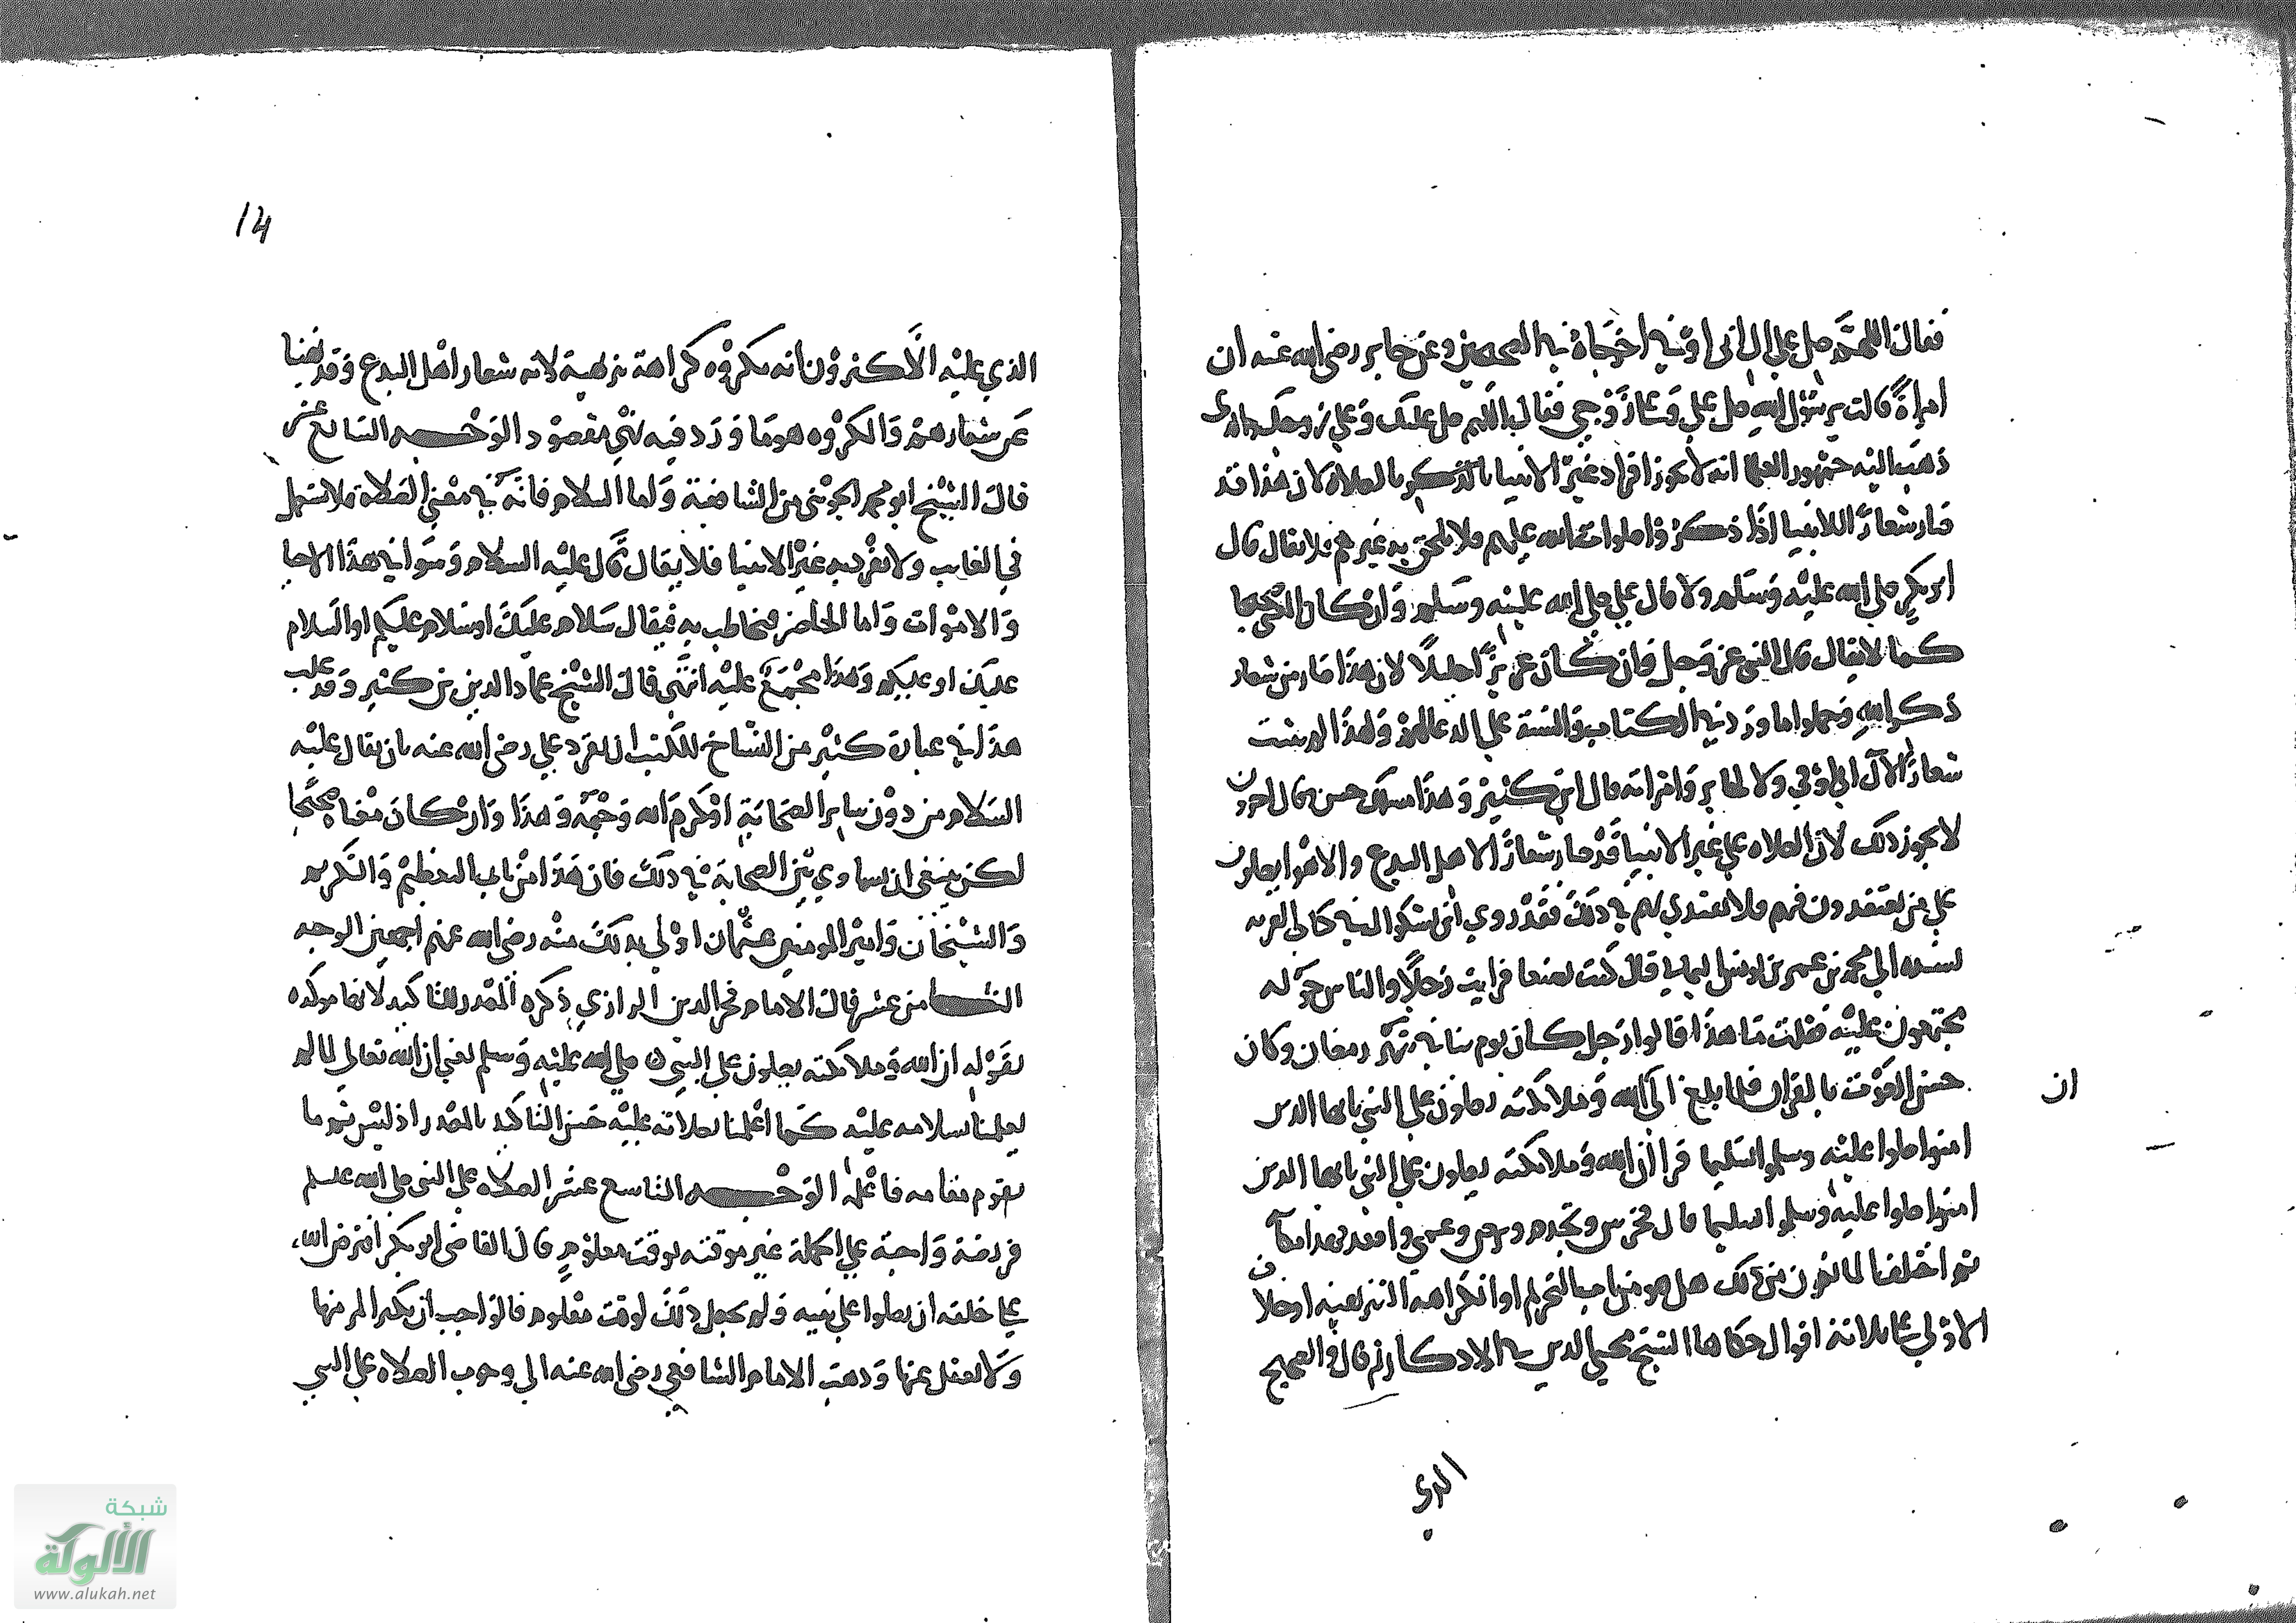 فقال اللهم صل على ال ابى اوفى اخرجاه في الصحيحين وعن جابر رضى الله عنه ان
امراة قالت يرسول الله صل علي وعلى زوجي فقال صلى الله عليك وعلى زوجك والذى
ذهب اليه جمهور العلما انه لا يجوز افراد غير الانبيا بالصلاة لان هذا قد
صار شعارا للانبيا اذا ذكروا صلوات الله عليهم فلا يلحق بهم غيرهم فلا يقال قال
ابو بكر صلى الله عليه وسلم ولا قال علي صلى الله عليه وسلم وان كان المعنى صحيحا
كما لا يقال قال النبى عز وجل وان كان عزيزا جليلا لان هذا صار من شعار
ذكر الله وحملوا ما ورد في الكتاب والسنة على الدعا لهم ولهذا لم يثبت
شعارا لآل ابي اوفى ولا لجابر وامراته قال ابن كثير وهذا مسلك حسن قال اخرون
لا يجوز ذلك لان الصلاه علي غير الانبيا قد صار شعارا لاهل البدع والاهوا يصلون
علي من يعتقدون فيهم فلا يقتدي بهم في ذلك فقد روي ابن بشكوال في كتاب القربه
بسنده الي محمد بن عمر بن يونس اليمامي قال كنت بصنعا فرايت رجلا والناس حوله
مجتمعون عليه فقلت ما هذا قالوا رجل كان يوم بنا في شهر رمضان وكان
حسن الصوت بالقران فلما بلغ الى الله وملائكته يصلون على النبي يايها الذين
ان
امنوا صلوا عليه وسلموا تسليما قرا ان الله وملائكته يصلون على علي النبي يايها الذين
امنوا صلوا عليه وسلموا تسليما قال فخرس وتجذم وبرص وعمي واقعد فهذا مكانه
ثم اختلفنا لمانعون من ذلك هل هو من باب التحريم او الكراهة التنزيهية او خلاف
الاولي على ثلاثة اقوال حكاها الشيخ محيي الدين في الاذكار ثم قال والصحيح
الذي
14
الذي عليه الاكثرون انه مكروه كراهة تنزيهية لانه شعار اهل البدع وقد نهينا
عن شعارهم والمكروه هو ما ورد فيه نهي مقصود الوجه السابع عشر
قال الشيخ ابو محمد الجويني من الشافعية واما السلام فانه في معنى الصلاة فلا يستعمل
في الغايب ولا يفرد به غير الانبيا فلا يقال قال علي عليه السلام وسوا في هذا الاحيا
والاموات واما الحاضر فيخاطب به فيقال سلام عليك او سلام عليكم او السلام
عليك او عليكم وهذا مجمع عليه انتهى قال الشيخ عماد الدين بن كثير وقد غلب
هذا في عبارة كثير من النساخ للكتب ان يفرد علي رضى الله عنه بان يقال عليه
السلام من دون ساير الصحابة او كرم الله وجهه وهذا وان كان معناه صحيحا
لكن ينبغي ان يساوي بين الصحابة في ذلك فان هذا من باب التعظيم والتكريم
والشيخان وامير المومنين عثمان اولى بذلك منه رضى الله عنهم اجمعين الوجه
الثامن عشر قال الامام فخر الدين الرازي ذكره المصدر للتاكيد لانها موكده
بقوله ان الله وملائكته يصلون على النبي صلى الله عليه وسلم يعني ان الله تعالى لما لم
يعلمنا بسلامه عليه كما اعلمنا بصلاته عليه حسن التاكيد بالمصدر اذ ليس ثم ما
يقوم مقامه فاعلم الوجه التاسع عشر الصلاة علي النبى صلى الله عليه وسلم
فريضة واجبة علي الجملة غير موقتة بوقت معلوم قال القاضى ابو بكر افترض الله
على خلقه ان يصلوا علي نبيه ولم يجعل ذلك لوقت معلوم فالواجب ان يكثر المر منها
ولا يغفل عنها وذهب الامام الشافعي رضى الله عنه الي وجوب الصلاة على النبي
شبكة
الألوكة
www.alukah.net